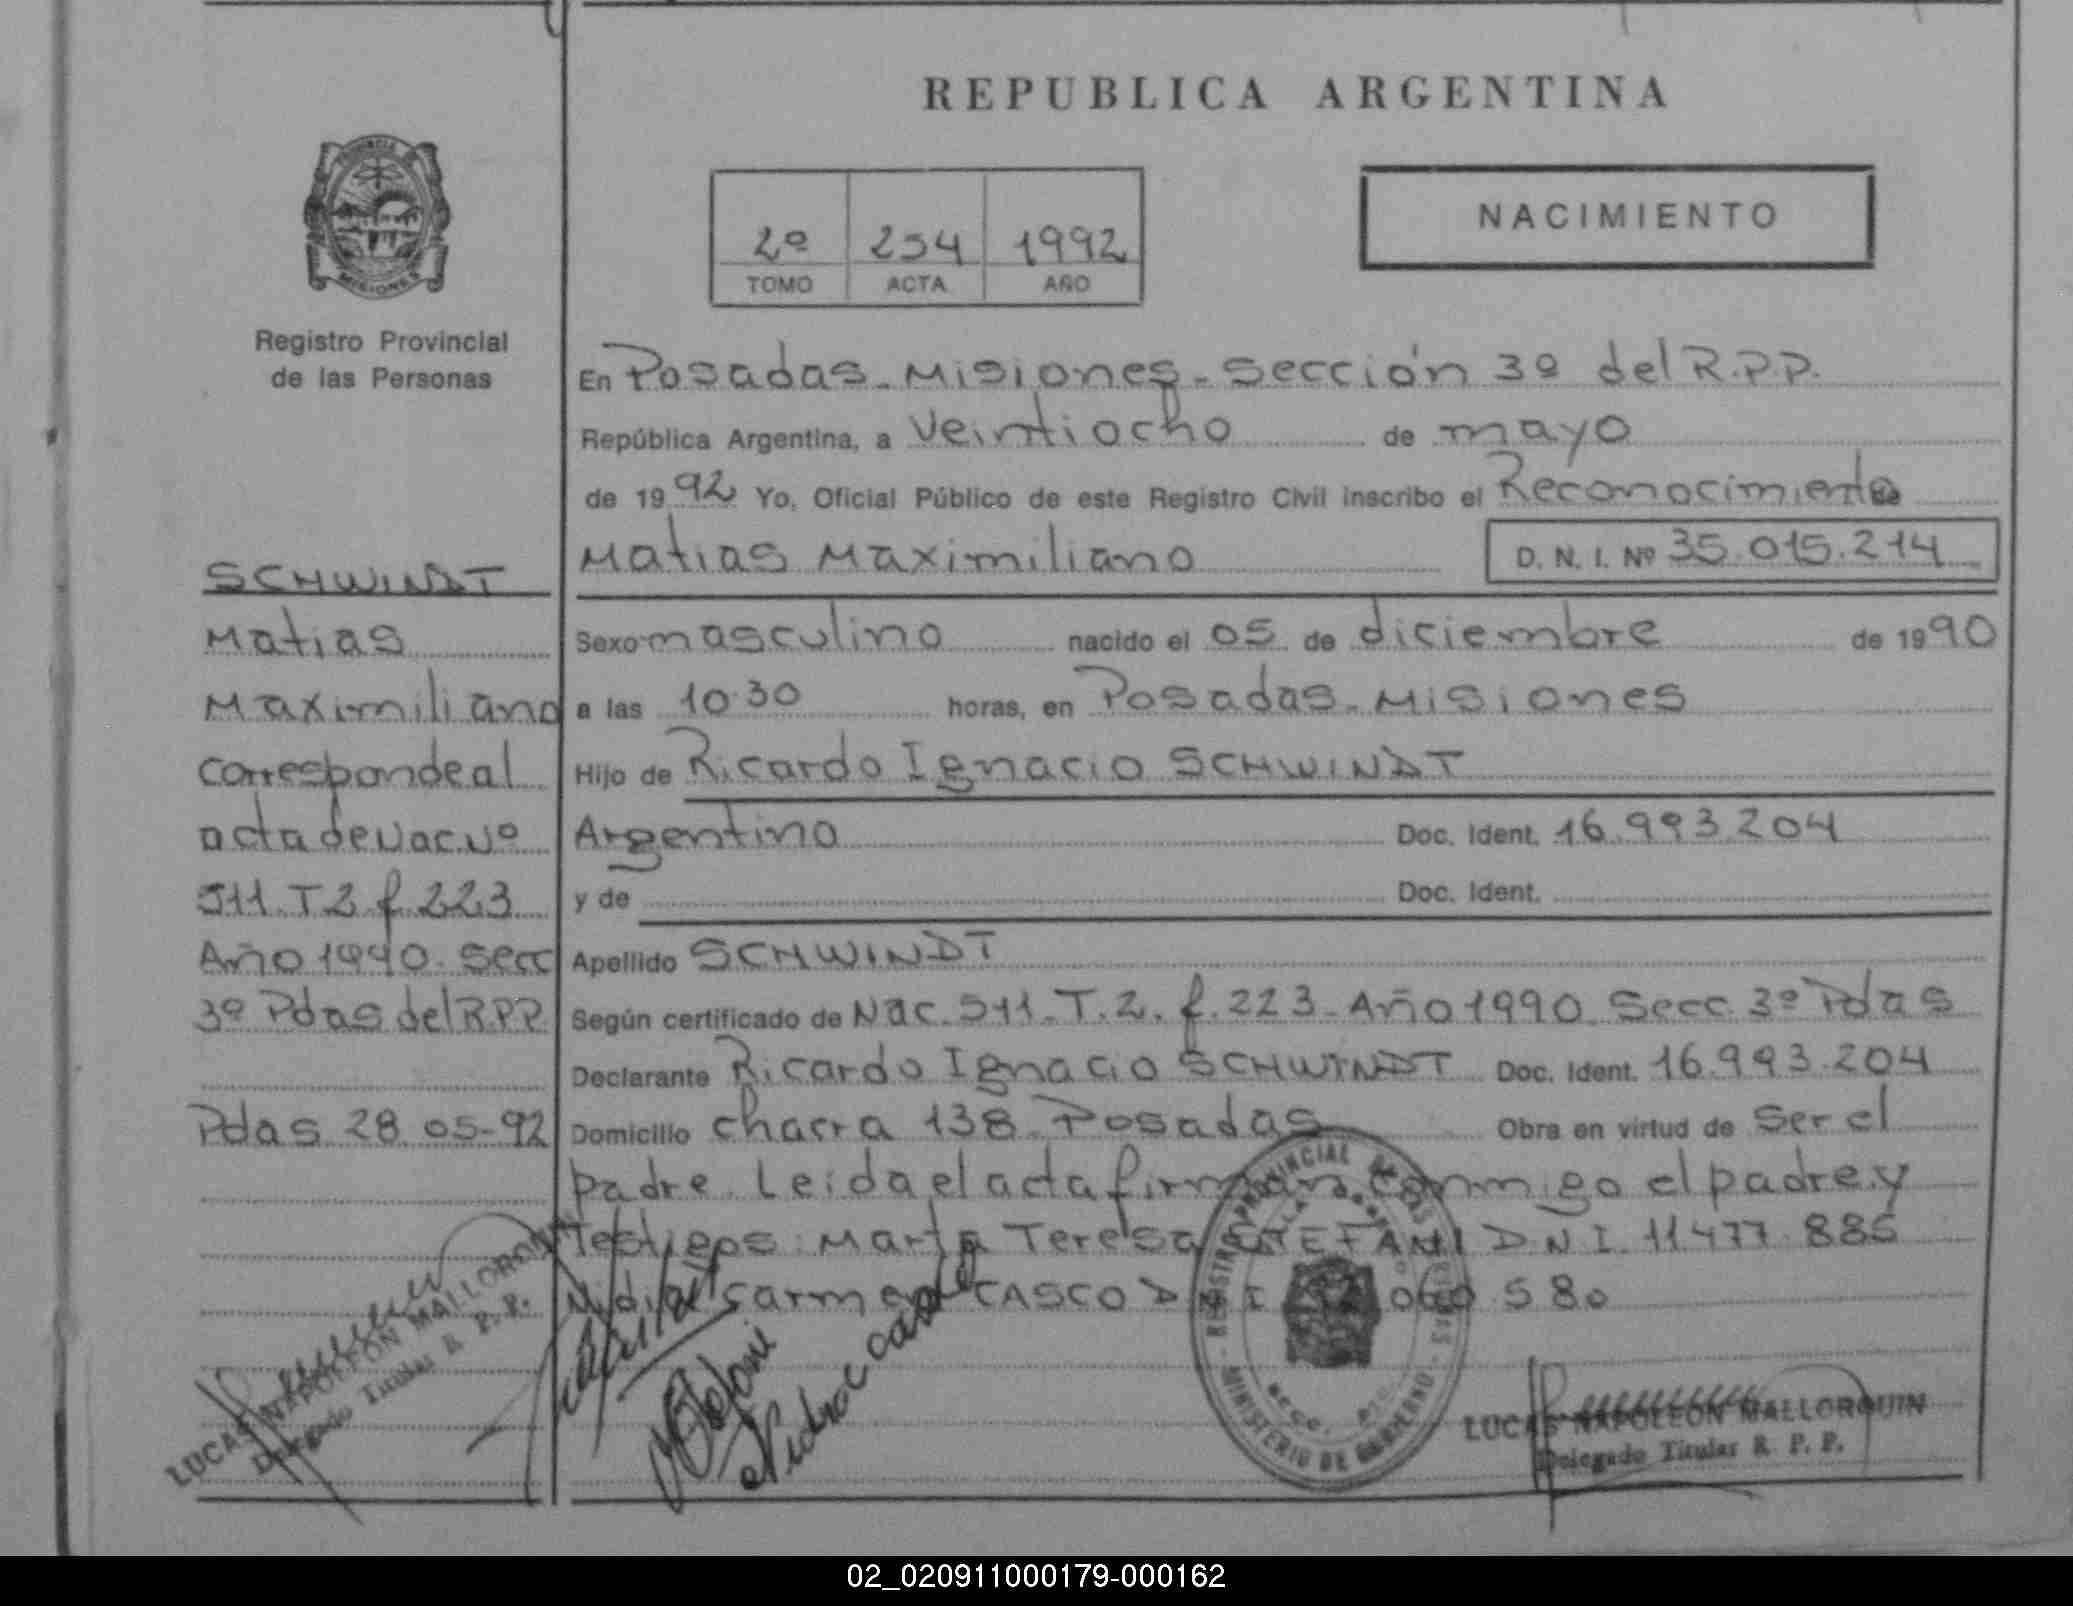 REPUBLICA ARGENTINA
PROVINCIA DE
MISIONES
Registro Provincial
de las Personas
2º 254 1992
TOMO ACTA AÑO
NACIMIENTO
En Posadas - Misiones - Sección 3º del R.P.P.
República Argentina, a veintiocho de mayo
de 1992 Yo, Oficial Público de este Registro Civil inscribo el Reconocimiento de
Matias Maximiliano D. N. I. Nº 35.015.214
Sexo masculino nacido el 05 de diciembre de 1990
a las 10:30 horas, en Posadas - Misiones
Hijo de Ricardo Ignacio SCHWINDT
Argentino Doc. Ident. 16.993.204
y de Doc. Ident.
Apellido SCHWINDT
Según certificado de Nac. 511. T. 2. f. 223 - Año 1990. Secc. 3º Pdas
Declarante Ricardo Ignacio SCHWINDT Doc. Ident. 16.993.204
Domicilio chacra 138 - Posadas Obra en virtud de ser el
padre. Leida el acta firman conmigo el padre y
Testigos: Marta Teresa STEFANI D N I. 11 477. 885
Nidia Carmen CASCO D N I 580
SCHWINDT
Matias
Maximiliano
corresponde al
acta de Nac. Nº
511. T2 f 223
Año 1990. Secc
3º Pdas del R.P.P.
Pdas 28 05-92
LUCAS NAPOLEON MALLORQUIN
Delegado Titular R. P. P.
MINISTERIO DE GOBIERNO
LUCAS NAPOLEON MALLORQUIN
Delegado Titular R. P. P.
02_020911000179-000162